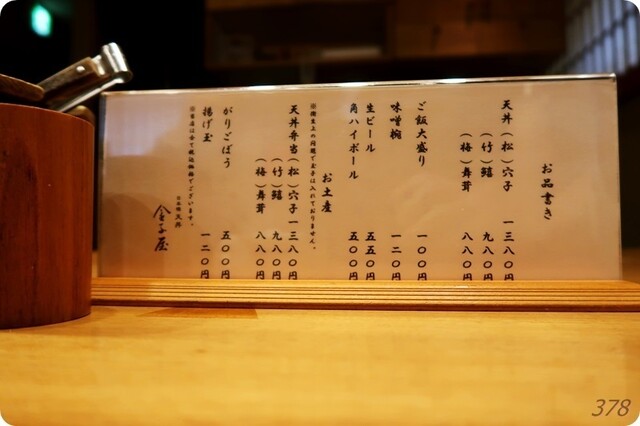 お品書き
天丼（松）穴子 一三八〇円
（竹）鱚 九八〇円
（梅）舞茸 八八〇円
ご飯大盛り 一〇〇円
味噌椀 一二〇円
生ビール 五五〇円
角ハイボール 五〇〇円
お土産
※衛生上の問題で玉子は入れておりません。
天丼弁当（松）穴子 一三八〇円
（竹）鱚 九八〇円
（梅）舞茸 八八〇円
がりごぼう 五〇〇円
揚げ玉 一二〇円
※当店は全て税込価格でございます。
日本橋 天丼
金子屋
378